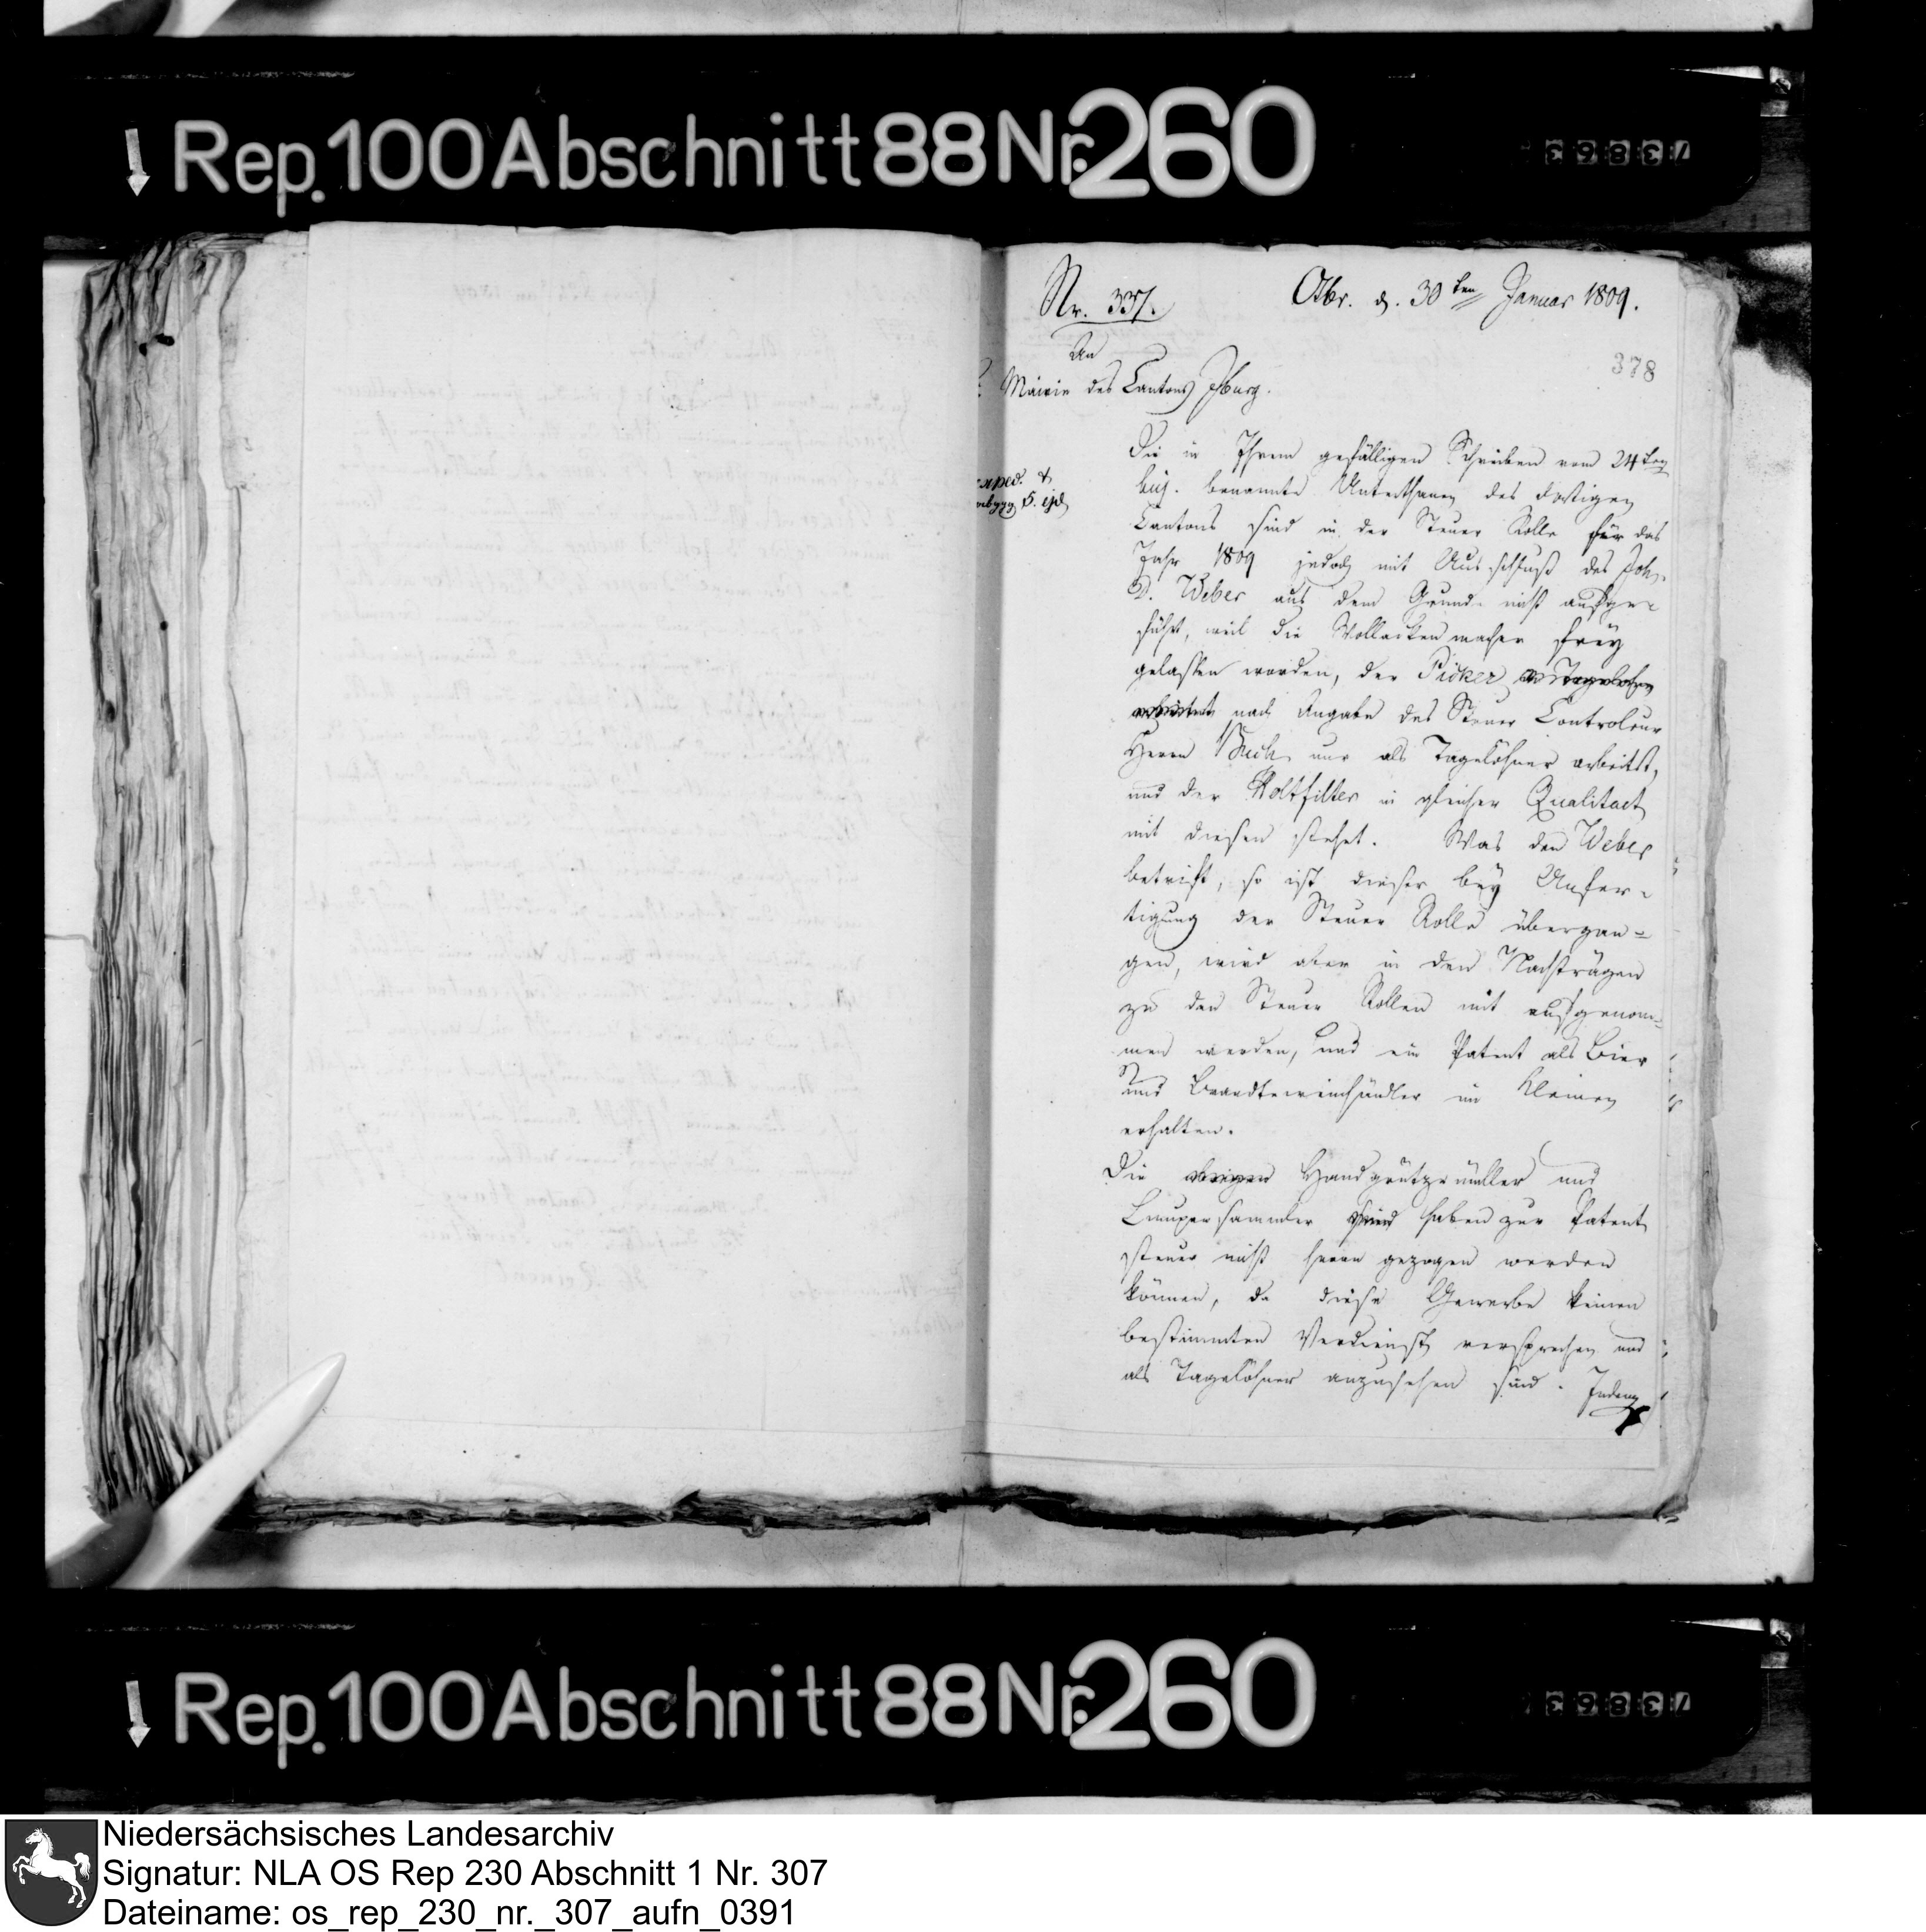 Rep. 100 Abschnitt 88 Nr. 260
73863
Nr. 337.
Osbr. d. 30ten Januar 1809.
378
An
Mairie des Cantons Iburg.
Die in Ihrem gefälligen Schreiben vom 24ten
huj. benannte Unterthanen des dortigen
Cantons sind in der Steuer Rolle für das
Jahr 1809 jedoch mit Ausschluß des Joh.
D. Weber aus dem Grunde nicht aufge-
führt, weil die Wollackenmacher frey
gelassen worden, der Picker
nach Angabe des Steuer Controleur
Herrn nur als Tagelöhner arbeitet,
und der Holtfilter in gleicher Qualitaet
mit diesen stehet. Was den Weber
betrift, so ist dieser bey Anfer-
tigung der Steuer Rolle übergan=
gen, wird aber in den Nachträgen
zu den Steuer Rollen mit aufgenom=
men werden, und ein Patent als Bier
und Brandteweinhändler im Kleinen
erhalten.
Die übrigen Handgrützemüller und
Lumpensammler sind haben zur Patent
steuer nicht heran gezogen werden
können, da diese Gewerbe keinen
bestimmten Verdienst versprechen und
als Tagelöhner anzusehen sind. Indem
exped. d.
5. ejd
Rep. 100 Abschnitt 88 Nr. 260
73863
Niedersächsisches Landesarchiv
Signatur: NLA OS Rep 230 Abschnitt 1 Nr. 307
Dateiname: os_rep_230_nr._307_aufn_0391